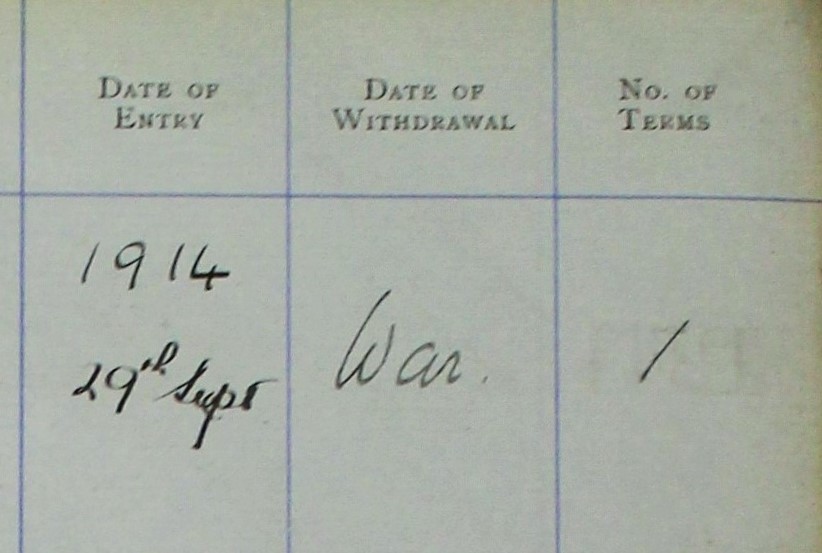 DATE OF ENTRY
DATE OF WITHDRAWAL
NO. OF TERMS
1914
29th Sept
War.
1